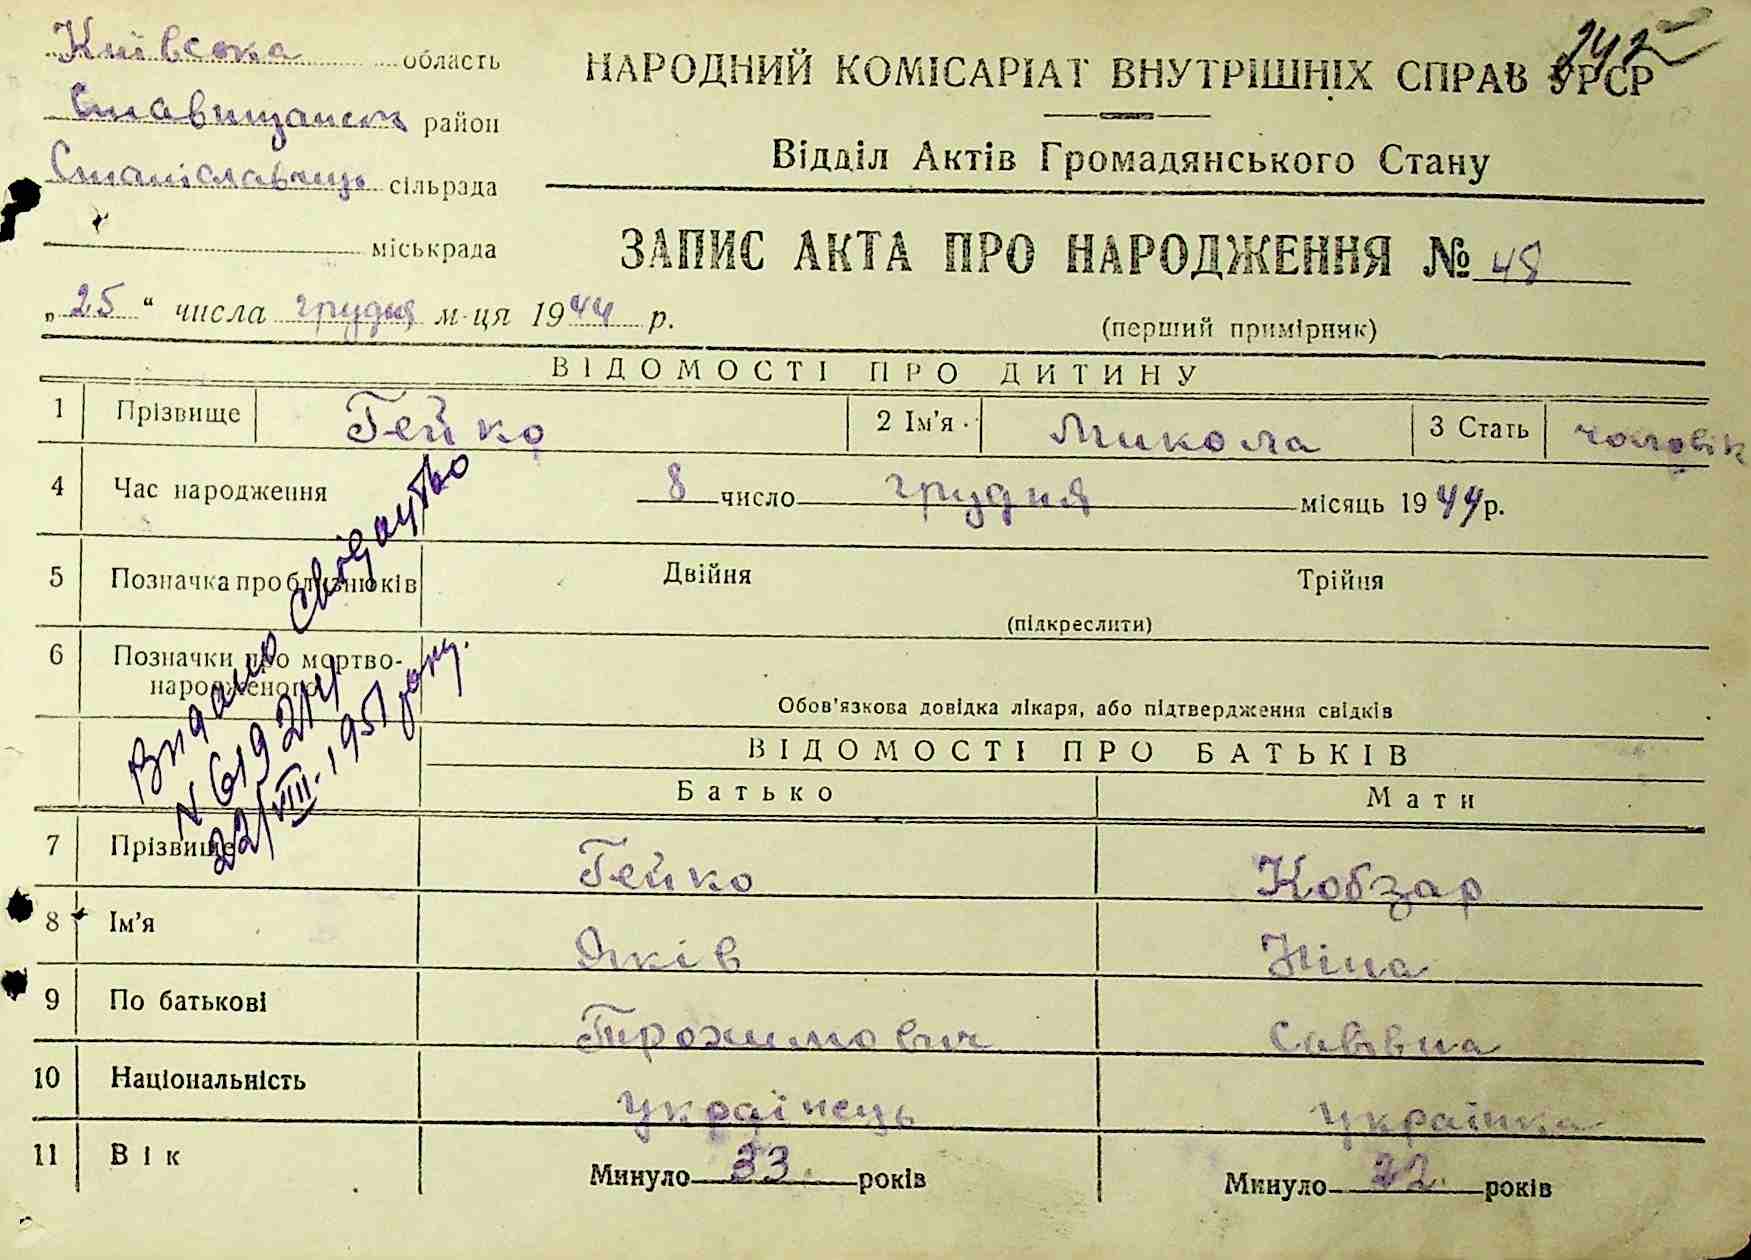 Київська область
Ставищанськ район
Станіславчиць сільрада
міськрада
„25“ числа грудня м-ця 1944 р.
НАРОДНИЙ КОМІСАРІАТ ВНУТРІШНІХ СПРАВ УРСР
Відділ Актів Громадянського Стану
ЗАПИС АКТА ПРО НАРОДЖЕННЯ № 48
(перший примірник)
ВІДОМОСТІ ПРО ДИТИНУ
1 Прізвище Гейко 2 Ім'я Микола 3 Стать чоловік
4 Час народження 8 число грудня місяць 1944 р.
5 Позначка про близнюків Двійня Трійня
(підкреслити)
6 Позначки про мортво-
народженого
Обов'язкова довідка лікаря, або підтвердження свідків
Видано свідоцтво
N 619214
22/VIII. 1951 року.
ВІДОМОСТІ ПРО БАТЬКІВ
Батько Мати
7 Прізвище Гейко Кобзар
8 Ім'я Яків Ніна
9 По батькові Трохимович Саввівна
10 Національність українець українка
11 Вік Минуло 33 років Минуло років